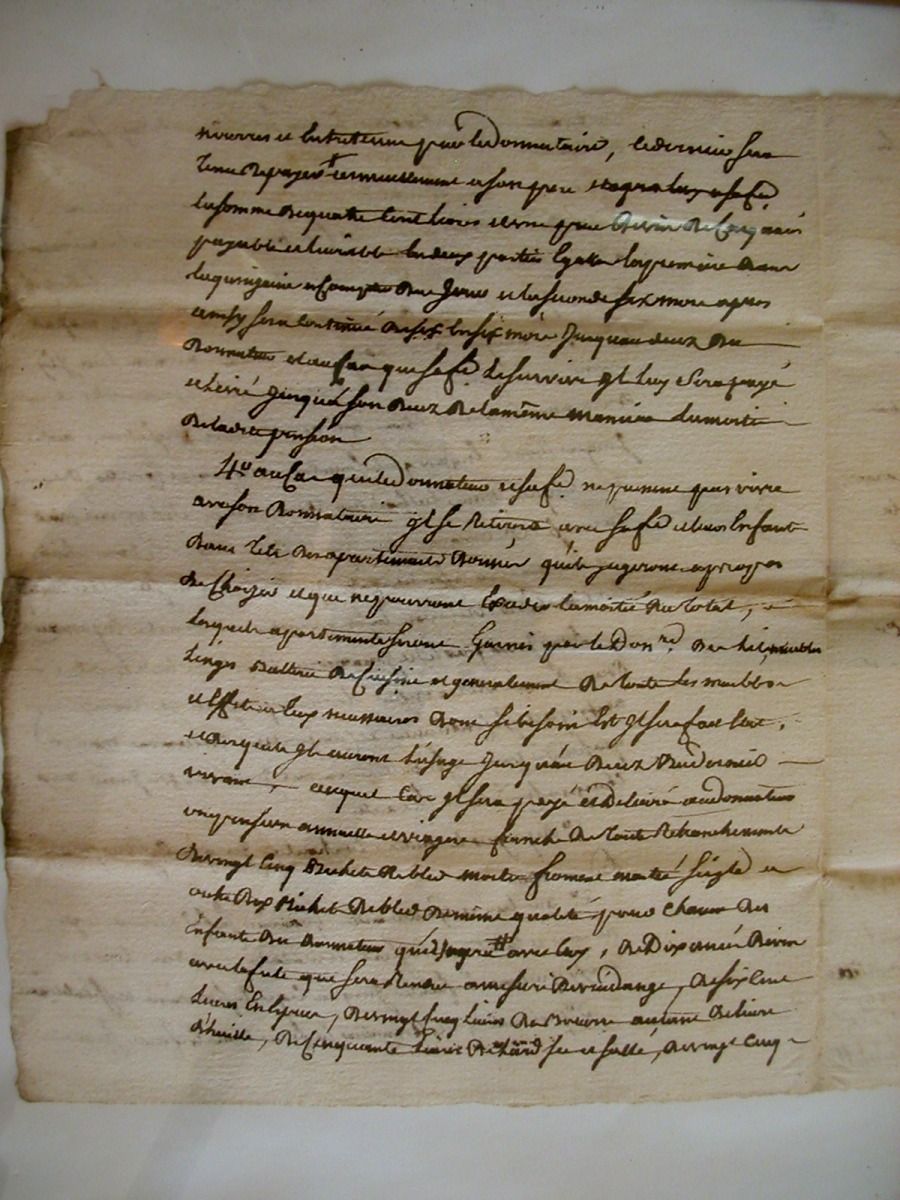 nourris et Entretenu par le donnataire, ce dernier sera
tenu de payer annuellement a son pere
la somme de quatre Cent livres et une de vin
payable et livrable En deux parties Egalles la premiere dans
la quinzaine a Compter du Jour et la seconde six mois apres
ainsy sera Continué de six En six mois Jusqu'au decez du
Donnateur et au cas que sa fe. Le survive Il luy sera payé
et livré Jusqu'a son decez de la même maniere La moitié
de ladite pension
4º au Cas que le donnateur et sa fe. ne puissent pas vivre
avec son Donnataire Il se Retirera avec sa fe. et leurs Enfants
dans tels des apartements Donnés qu'ils jugeront a propos
de Choisir et que ne pourront Exceder la moitié du total,
lesquels apartements seront Garnis par le Don.re de lits, meubles
Linges Batterie de Cuisine et generalement de toute Les meubles
et Effets a Eux necessaires dont si besoin Est Il sera fait Etat,
et desquels Ils auront L'usage Jusqu'au decez du dernier
vivant, auquel Cas Il sera payé et delivré au donnateur
une pension annuelle et viagere franche de toute Retranchements
de vingt Cinq Bichets de bled moitié froment moitié seigle et
outre Dix Bichets de bled de même qualité pour Chacun des
enfants du donnateur avec luy, de Dix anées de vin
avec la futs que sera Rendre a mesure de vendange, de six Cent
Livres En Espece, de vingt Cinq Livres de Beurre autant de livre
d'huille, de Cinquante Livres de Lard sec et sallé, de vingt Cinq